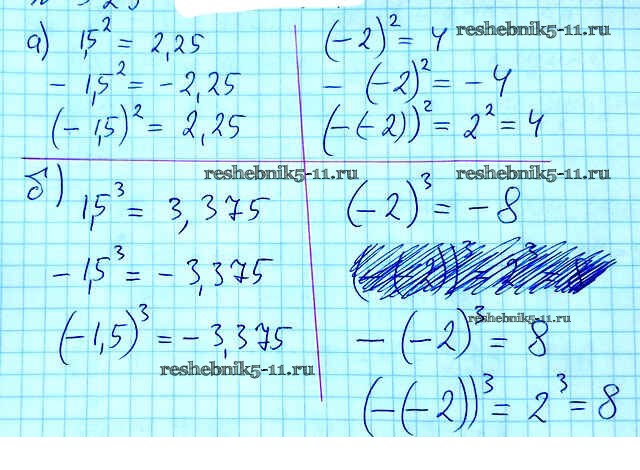 а) 1,5² = 2,25
- 1,5² = - 2,25
(- 1,5)² = 2,25
(-2)² = 4
reshebnik5-11.ru
- (-2)² = - 4
(-(-2))² = 2² = 4
reshebnik5-11.ru
reshebnik5-11.ru
б) 1,5³ = 3,375
- 1,5³ = - 3,375
(-1,5)³ = - 3,375
reshebnik5-11.ru
(-2)³ = - 8
reshebnik5-11.ru
- (-2)³ = 8
(-(-2))³ = 2³ = 8